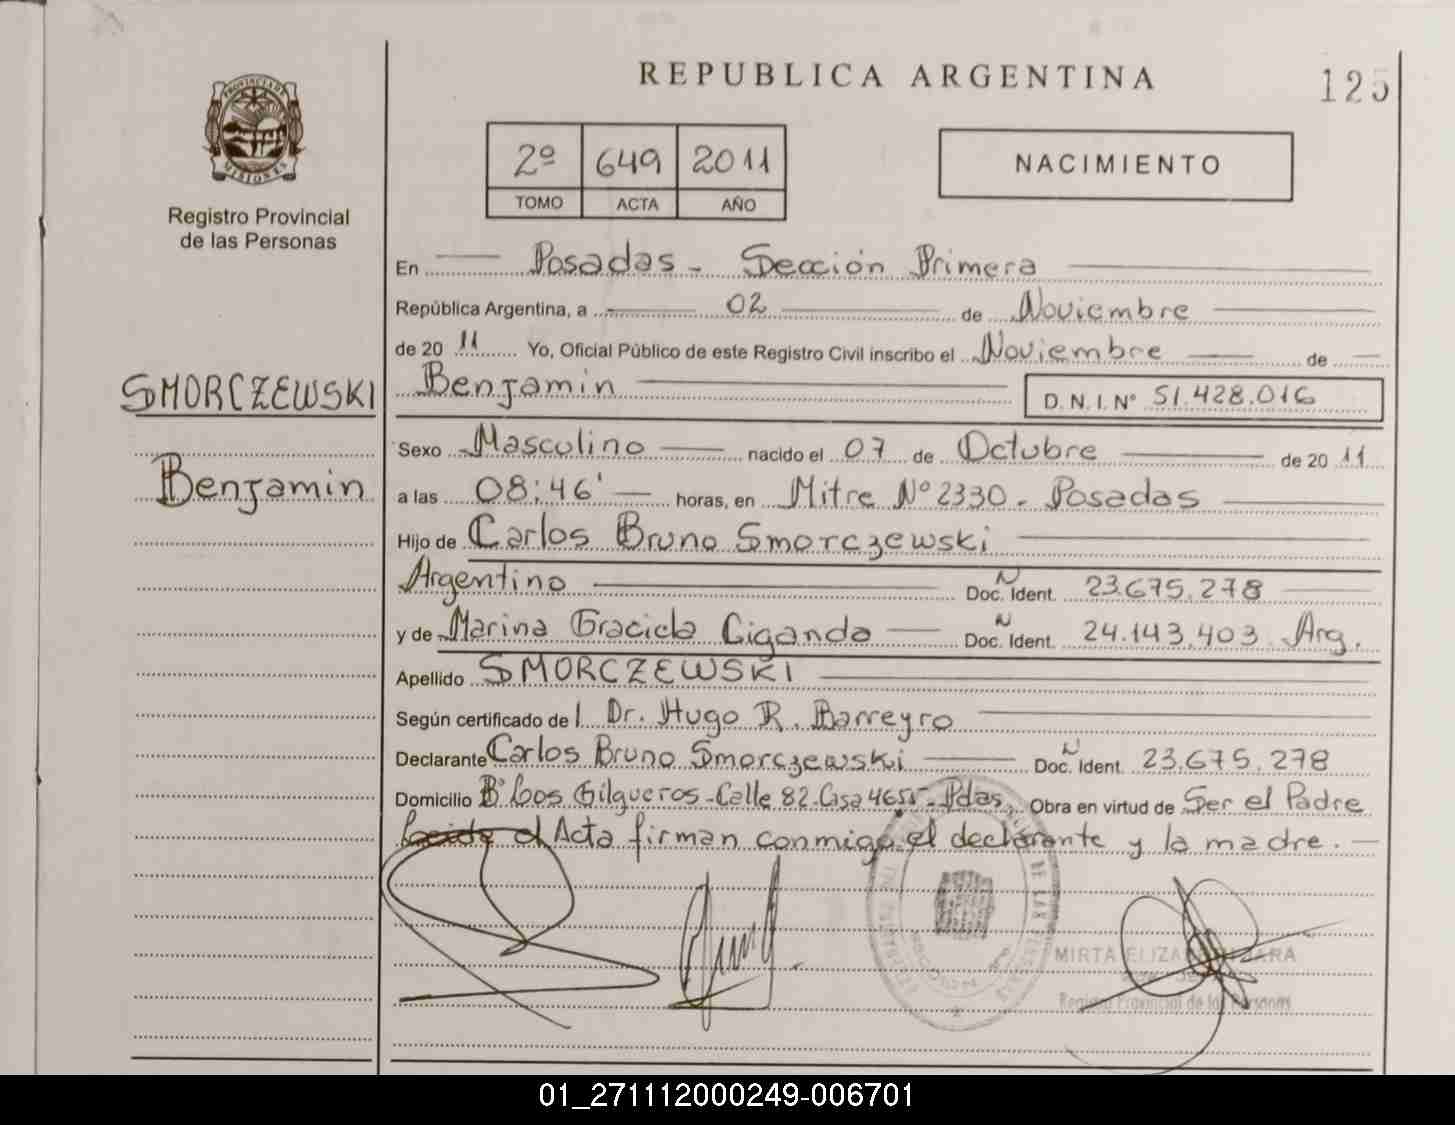 REPUBLICA ARGENTINA
125
PROVINCIA DE
MISIONES
Registro Provincial
de las Personas
2º 649 2011
TOMO ACTA AÑO
NACIMIENTO
En Posadas - Sección Primera
República Argentina, a 02 de Noviembre
de 20 11 Yo, Oficial Público de este Registro Civil inscribo el Noviembre de
SMORCZEWSKI
Benjamin
Benjamin
D.N.I.Nº 51.428.016
Sexo Masculino nacido el 07 de Octubre de 20 11
a las 08:46' horas, en Mitre Nº 2330 - Posadas
Hijo de Carlos Bruno Smorczewski
Argentino Doc. Ident. 23.675.278
y de Marina Graciela Ciganda Doc. Ident. 24.143.403 Arg.
Apellido SMORCZEWSKI
Según certificado de l Dr. Hugo R. Barreyro
Declarante Carlos Bruno Smorczewski Doc. Ident. 23.675.278
Domicilio Bº Los Gilgueros - Calle 82 - Casa 4655 - Pdas, Obra en virtud de Ser el Padre
el Acta firman conmigo el declarante y la madre.
MIRTA
Registro Provincial de las Personas
01_271112000249-006701